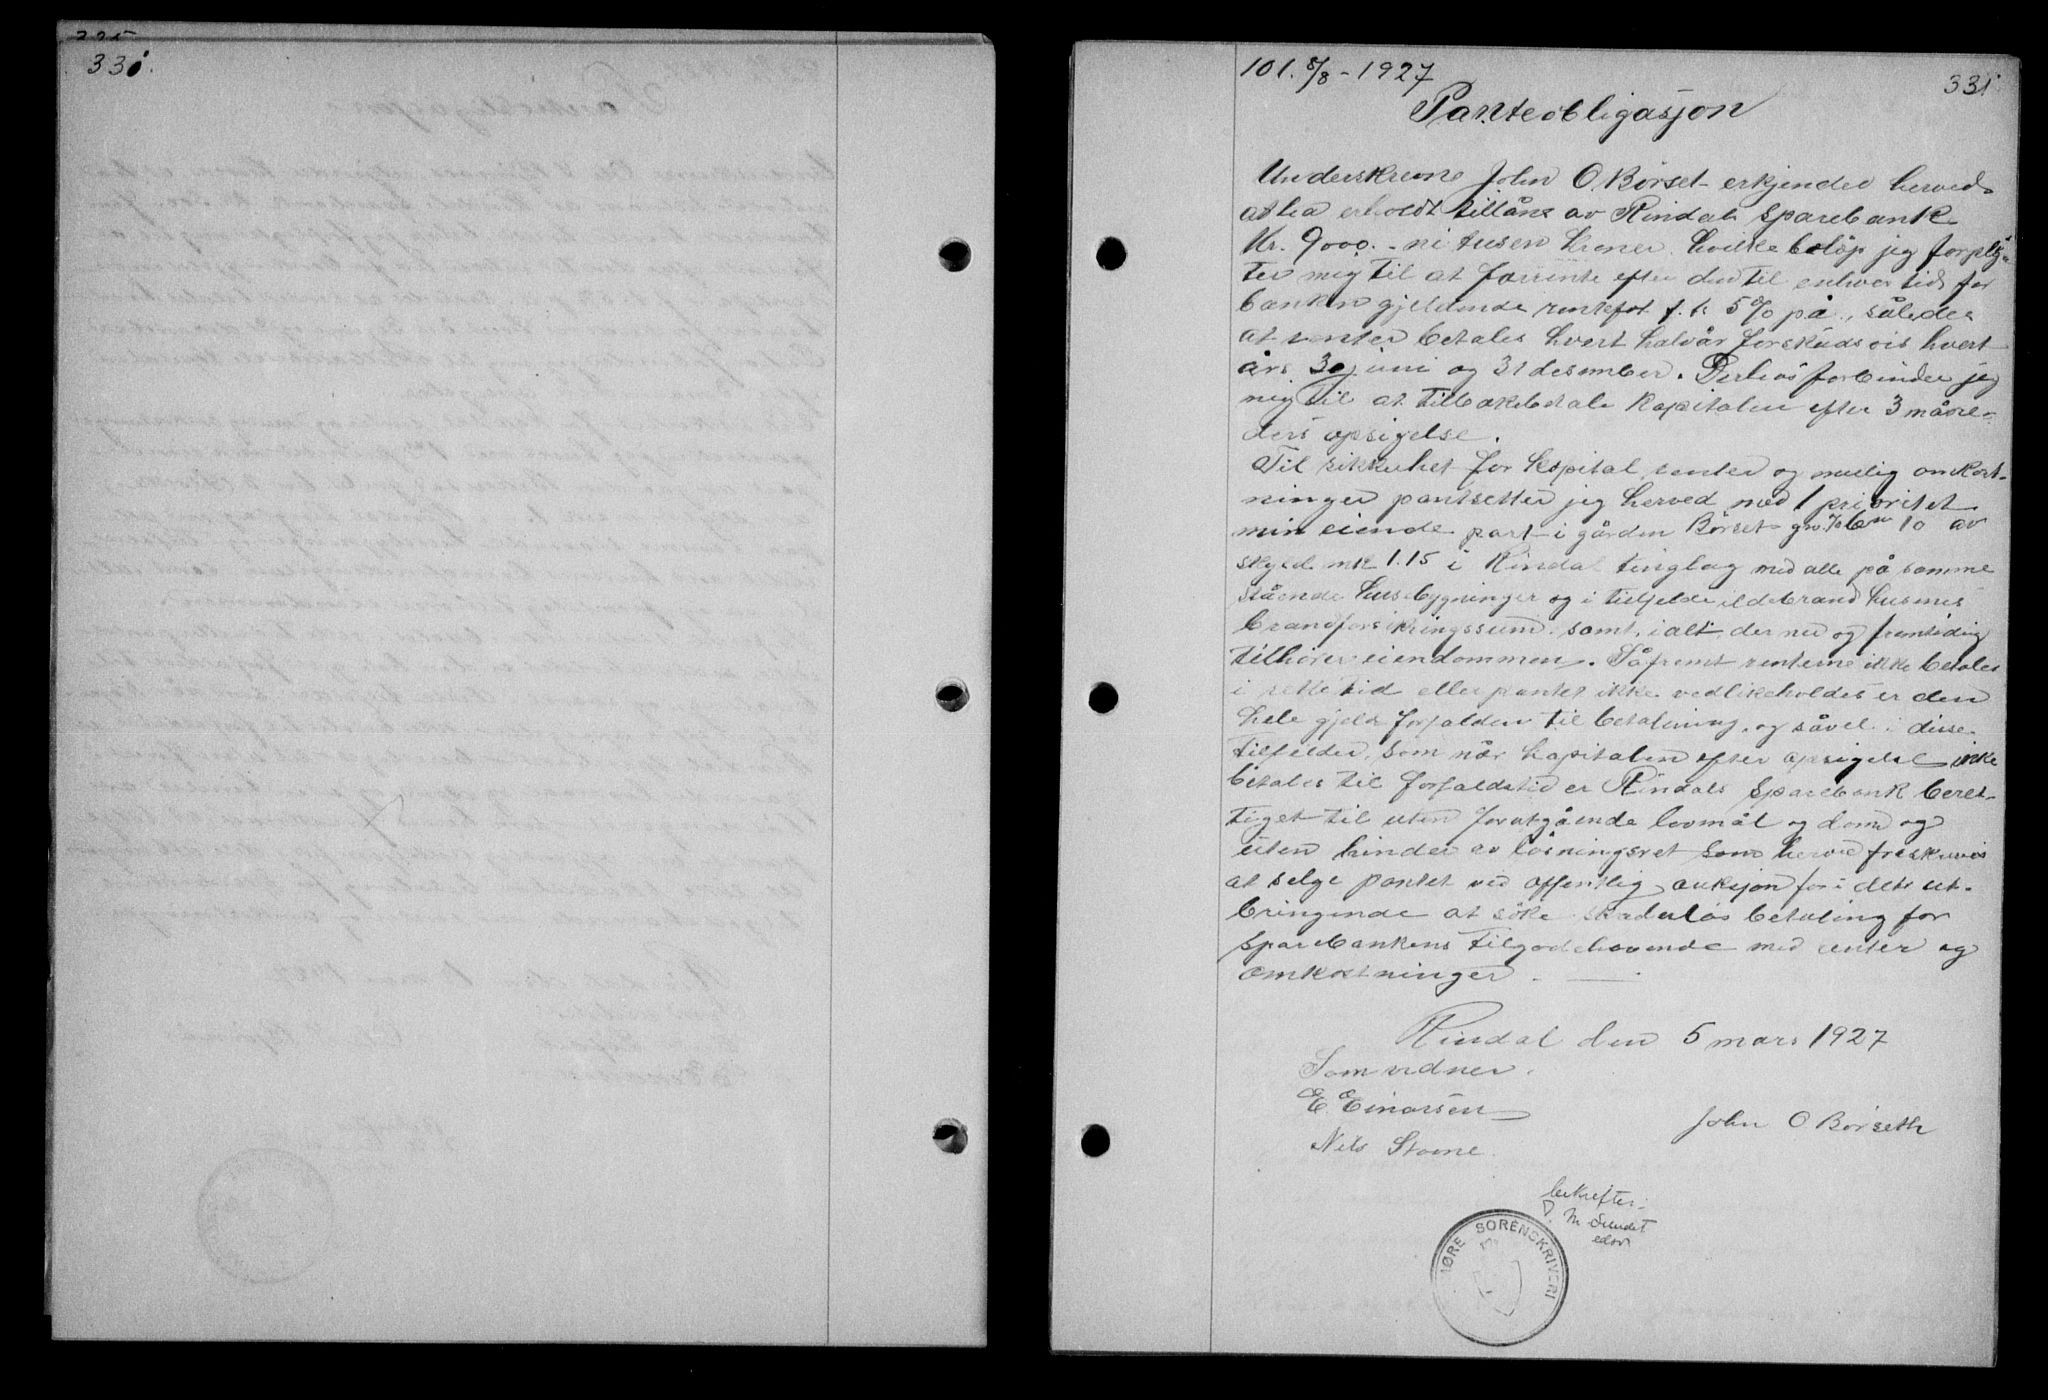 330.
101. 8/8 - 1927
331
Panteobligasjon
Underskrevne John O. Børset erkjender herved
at ha erholdt tillåns av Rindals Sparebank
Kr. 9000. - ni tusen kroner hvilke beløp jeg forplig-
ter mig til at forrente efter den til enhver tid for
banken gjeldende rentefot f. t. 5 % på., således
at renter betales hvert halvår forskudsvis hvert
års 30 juni og 31 desember. Derhos forbinder jeg
mig til at tilbakebetale kapitalen efter 3 måne-
ders opsigelse.
Til sikkerhet for kapital, renter og mulig omkost-
ninger pantsetter jeg herved med 1 prioritet
min eiende part i gården Børset gno. bno 10 av
skyld mk 1.15 i Rindal tinglag med alle på samme
stående husebygninger og i tilfelde ildebrand husenes
brandforsikringssum samt i alt der nu og fremtidig
tilhører eiendommen. Såfremt renterne ikke betales
i rette tid eller pantet ikke vedlikeholdes er den
hele gjeld forfalden til betalning, og såvel i disse
tilfelder, som når kapitalen efter opsigelse ikke
betales til forfaldstid er Rindals Sparebank beret-
tiget til uten forutgående lovmål og dom og
uten hinder av løsningsret som herved fraskrives
at selge pantet ved offentlig auksjon for i dets ut-
bringende at søke skadesløs betaling for
sparebankens tilgodehavende med renter og
omkostninger.
Rindal den 5 mars 1927
Som vidner.
E. Einarsen
John O Børseth
Nils Stome.
bekreftes
M Sundet
edsv.
MØRE SORENSKRIVERI